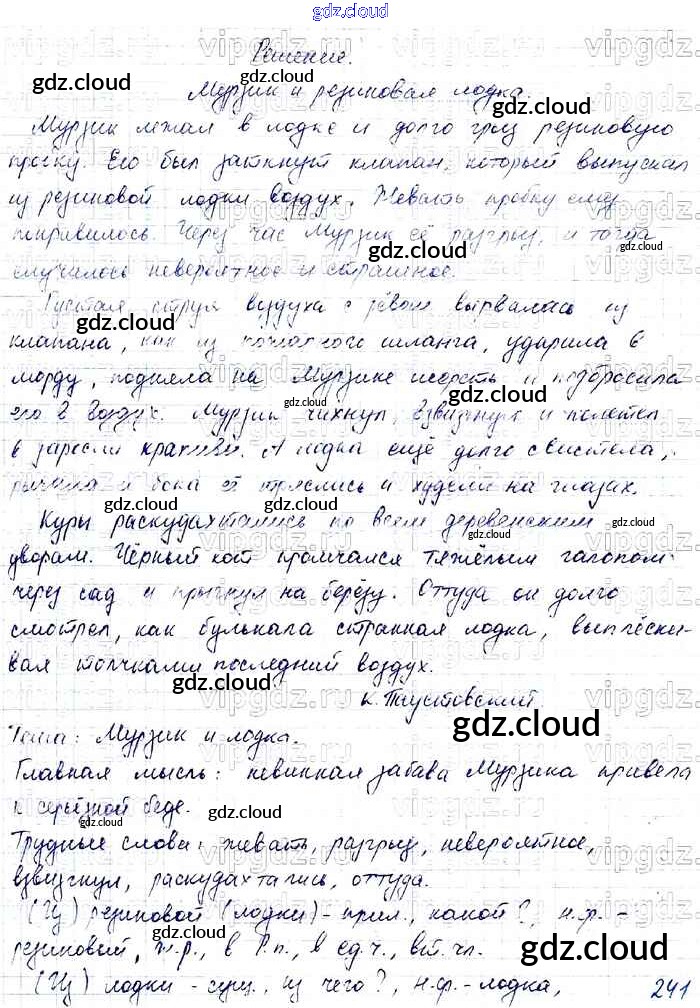 gdz.cloud
Решение.
Мурзик и резиновая лодка.
Мурзик лежал в лодке и долго грыз резиновую
пробку. Его был заткнут клапан, который выпускал
из резиновой лодки воздух. Жевать пробку ему
нравилось. Через час Мурзик её разгрыз, и тогда
случилось невероятное и страшное.
Густая струя воздуха с рёвом вырвалась из
клапана, как из пожарного шланга, ударила в
морду, подняла на Мурзике шерсть и подбросила
его в воздух. Мурзик чихнул, взвизгнул и полетел
в заросли крапивы. А лодка ещё долго свистела,
рычала и бока её тряслись и худели на глазах.
Куры раскудахтались по всем деревенским
дворам. Чёрный кот промчался тяжёлым галопом
через сад и прыгнул на берёзу. Оттуда он долго
смотрел, как булькала странная лодка, выплёски-
вая толчками последний воздух.
К. Паустовский.
Тема: Мурзик и лодка.
Главная мысль: невинная забава Мурзика привела
к серьёзной беде.
Трудные слова: жевать, разгрыз, невероятное,
взвизгнул, раскудахтались, оттуда.
(Из) резиновой (лодки) - прил., какой?, н.ф. -
резиновый, ж.р., в Р.п., в ед.ч., вт. чл.
(Из) лодки - сущ., из чего?, н.ф. - лодка,
241